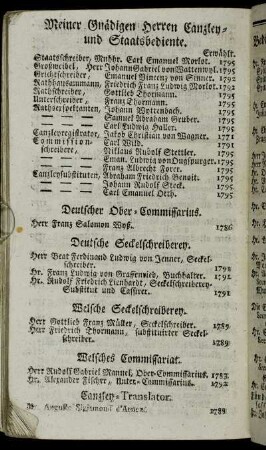 Meiner Gnädigen Herren Canzley-
und Staatsbediente.
Erwählt.
Staatsschreiber, Mnhhr. Carl Emanuel Morlot. 1795
Großweibel, Herr Johann Gabriel von Wattenwyl. 1795
Grichtschreiber, Emanuel Vincenz von Sinner. 1792
Rathhausammann, Friedrich Franz Ludwig Morlot. 1795
Rathschreiber, Gottlieb Thormann. 1795
Unterschreiber, Franz Thormann. 1795
Rathsexspectanten, Johann Wyttenbach. 1795
— — Samuel Abraham Gruber. 1795
— — Carl Ludwig Haller. 1795
Canzleyregistrator, Jakob Christian von Wagner. 1771
Commissions- Carl Wild. 1795
schreibere, Niklaus Rudolf Stettler. 1795
— — Eman. Ludwig von Ougspurger. 1795
— — Franz Albrecht Forer. 1795
Canzleysubstituten, Abraham Friedrich Benoit. 1795
— — Johann Rudolf Steck. 1795
— — Carl Emanuel Oth. 1795
Deutscher Ober-Commissarius.
Herr Franz Salomon Wyß. 1786
Deutsche Seckelschreiberey.
Herr Beat Ferdinand Ludwig von Jenner, Seckel-
schreiber. 1792
Hr. Franz Ludwig von Graffenried, Buchhalter. 1792
Hr. Rudolf Friedrich Lienhardt, Seckelschreiberey-
Substitut und Cassirer. 1792
Welsche Seckelschreiberey.
Herr Gottlieb Franz Müller, Seckelschreiber. 1789
Herr Friedrich Thormann, substituirter Seckel-
schreiber. 1789
Welsches Commissariat.
Herr Rudolf Gabriel Manuel, Ober-Commissarius. 1783
Hr. Alexander Fischer, Unter-Commissarius. 1792
Canzley-Translator.
Hr. Sigismund 1788